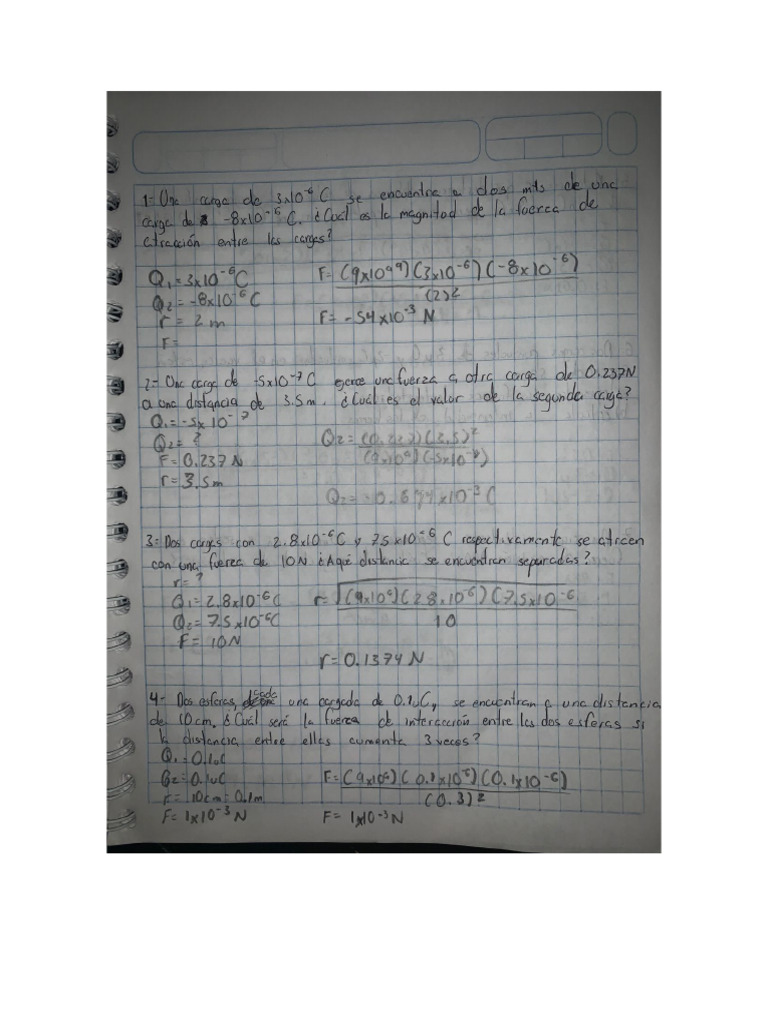 1- Una carga de 3x10⁻⁶ C se encuentra a dos mts de una
carga de -8x10⁻⁶ C. ¿Cuál es la magnitud de la fuerza de
atracción entre las cargas?
Q₁ = 3x10⁻⁶C
F= (9x10⁹)(3x10⁻⁶)(-8x10⁻⁶)
(2)²
Q₂ = -8x10⁻⁶C
r = 2 m
F= -54x10⁻³ N
F=
2- Una carga de -5x10⁻⁷ C ejerce una fuerza a otra carga de 0.237N
a una distancia de 3.5m. ¿Cuál es el valor de la segunda carga?
Q₁= -5x10⁻⁷
Q₂= ?
Q₂ = (0.237)(3.5)²
(9x10⁹)(-5x10⁻⁷)
F= 0.237 N
r= 3.5m
Q₂= -0.6x10⁻³ C
3- Dos cargas con 2.8x10⁻⁶C y 7.5x10⁻⁶ C respectivamente se atraen
con una fuerza de 10N ¿A qué distancia se encuentran separadas?
r= ?
Q₁= 2.8x10⁻⁶C
r= √(9x10⁹)(2.8x10⁻⁶)(7.5x10⁻⁶
10
Q₂= 7.5x10⁻⁶C
F= 10N
r= 0.1374 N
4- Dos esferas, cada una cargada de 0.1uC, se encuentran a una distancia
de 10cm. ¿Cuál será la fuerza de interacción entre las dos esferas si
la distancia entre ellas aumenta 3 veces?
Q₁= 0.1uC
Q₂= 0.1uC
F= (9x10⁹)(0.1x10⁻⁶)(0.1x10⁻⁶)
(0.3)²
r= 10cm= 0.1m
F= 1x10⁻³ N
F= 1x10⁻³N